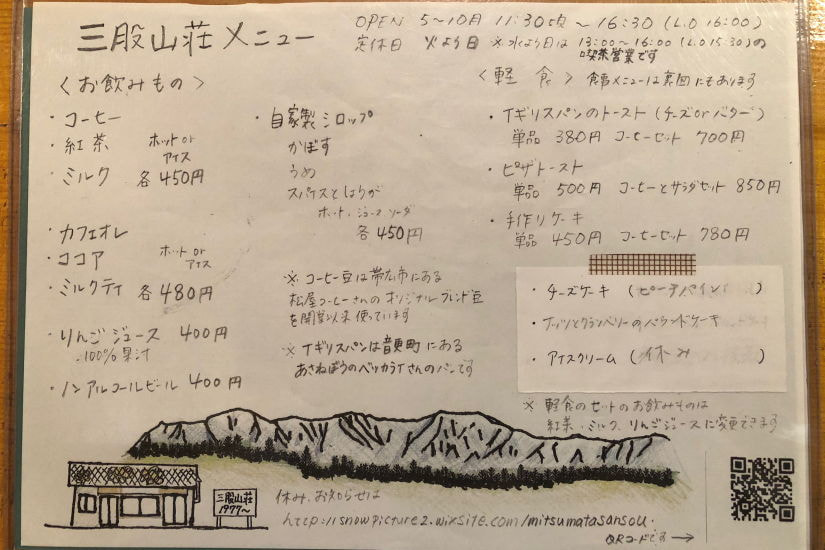 三股山荘メニュー
OPEN 5~10月 11:30頃 ~ 16:30 (L.O 16:00)
定休日 火よう日 ※水よう日は 13:00~16:00 (L.O 15:30)の
喫茶営業です
〈お飲みもの〉
・コーヒー
・紅茶 ホットor
アイス
・ミルク 各450円
・カフェオレ
・ココア ホットor
アイス
・ミルクティ 各480円
・りんごジュース 400円
100%果汁
・ノンアルコールビール 400円
・自家製シロップ
かぼす
うめ
スパイスとはりが
ホット・ジュース・ソーダ
各450円
※コーヒー豆は帯広市にある
松屋コーヒーさんのオリジナルブレンド豆
を開業以来使っています
※イギリスパンは音更町にある
あさねぼうのベッカライさんのパンです
〈軽食〉 食事メニューは裏面にもあります
・イギリスパンのトースト(チーズorバター)
単品 380円 コーヒーセット 700円
・ピザトースト
単品 500円 コーヒーとサラダセット 850円
・手作りケーキ
単品 450円 コーヒーセット 780円
・チーズケーキ (ピーチパイン )
・ナッツとクランベリーのパウンドケーキ
・アイスクリーム (休み )
※軽食のセットのお飲みものは
紅茶・ミルク、りんごジュースに変更できます
三股山荘
1977~
休み、お知らせは
http://snowpicture2.wixsite.com/mitsumatasansou.
QRコードです→